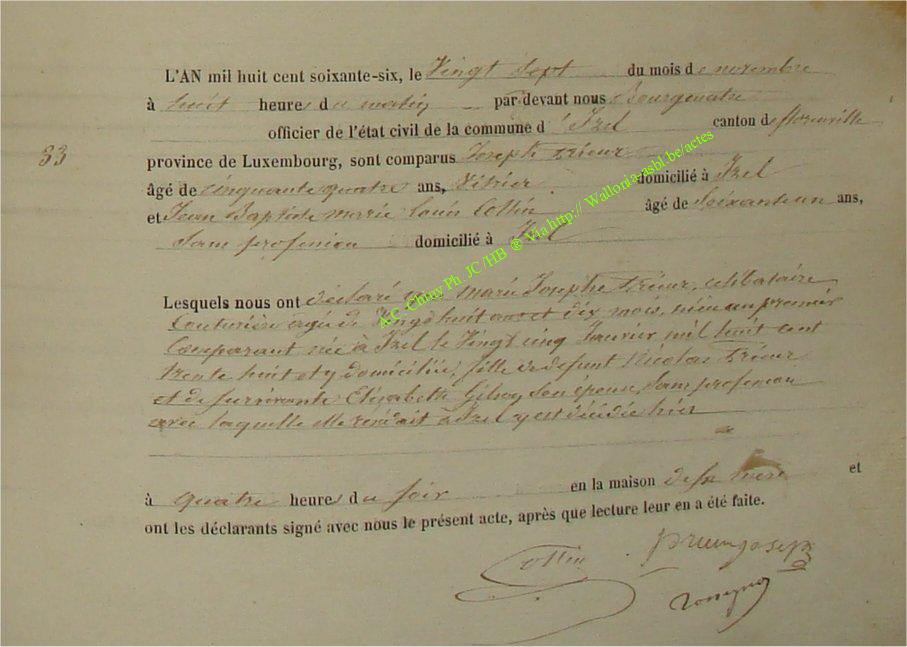 L'AN mil huit cent soixante-six, le Vingt Sept du mois de novembre
à huit heure du matin par devant nous Bourgmestre
officier de l'état civil de la commune d'Izel canton de florenville
33
province de Luxembourg, sont comparus Joseph Prieur
âgé de cinquante quatre ans, Vitrier domicilié à Izel
et Jean Baptiste marie louis Collin âgé de Soixante un ans,
Sans profession domicilié à Izel
AC -Chiny Ph. JC /HB @ Via http:// Wallonia-asbl.be/actes
Lesquels nous ont déclaré que marie Josephe Prieur, célibataire
Couturière agée de Vingt huit ans et dix mois, nièce au premier
Comparant née à Izel le Vingt cinq Janvier mil huit cent
trente huit et y domiciliée, fille de defunt Nicolas Prieur
et de survivante Elizabeth son épouse, Sans profession
avec laquelle elle résidait à Izel y est décédée hier
à quatre heure du soir en la maison de sa mère et
ont les déclarants signé avec nous le présent acte, après que lecture leur en a été faite.
Collin